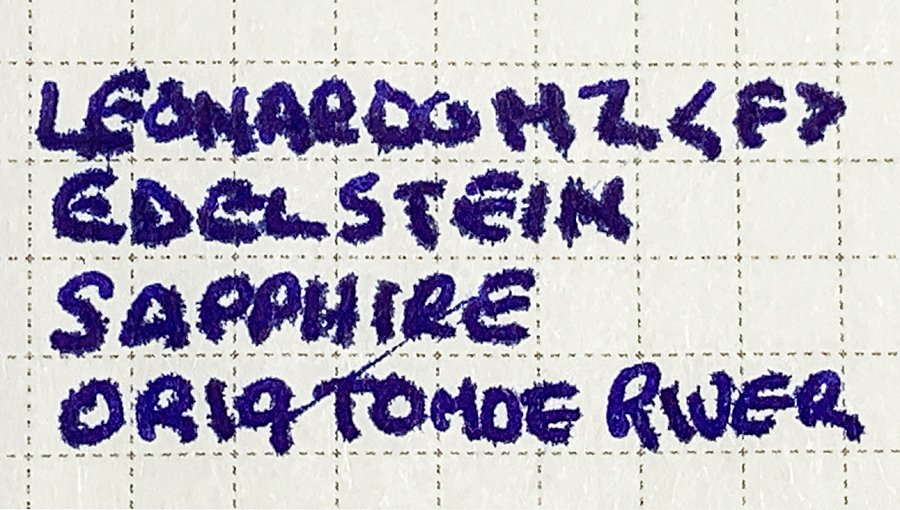 LEONARDO MZ <F>
EDELSTEIN
SAPPHIRE
ORIG TOMOE RIVER